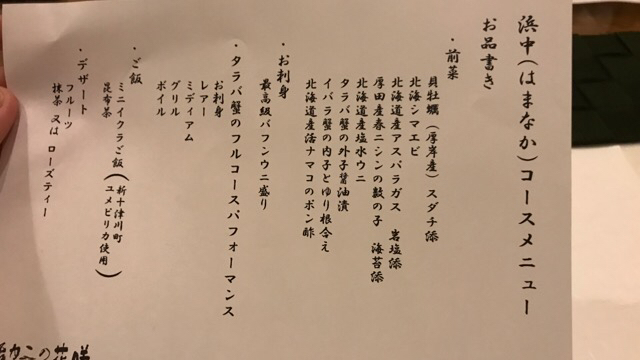 浜中(はまなか)コースメニュー
お品書き
・前菜
貝牡蠣(厚岸産)スダチ添
北海シマエビ
北海道産アスパラガス 岩塩添
厚田産春ニシンの数の子 海苔添
北海道産塩水ウニ
タラバ蟹の外子醤油漬
イバラ蟹の内子とゆり根合え
北海道産活ナマコのポン酢
・お刺身
最高級バフンウニ盛り
・タラバ蟹のフルコースパフォーマンス
お刺身
レアー
ミディアム
グリル
ボイル
・ご飯
ミニイクラご飯(新十津川町ユメピリカ使用)
昆布茶
・デザート
フルーツ
抹茶 又は ローズティー